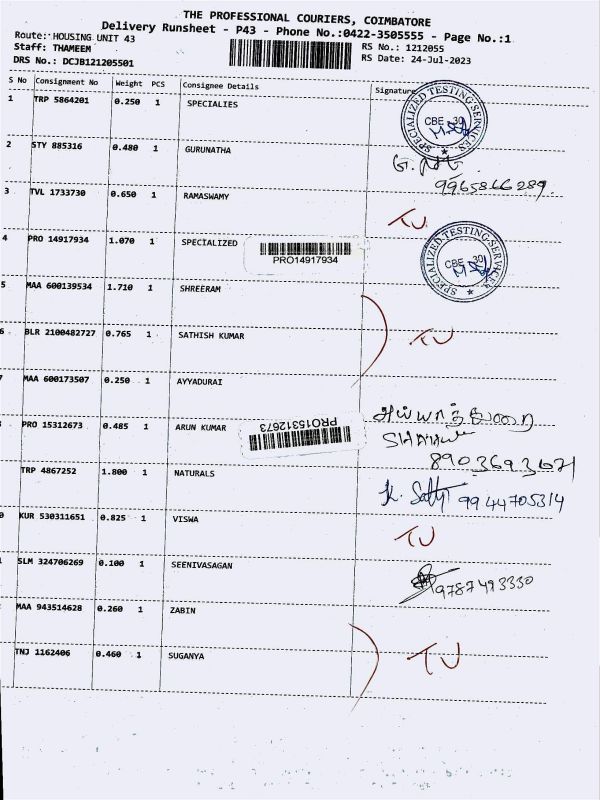 THE PROFESSIONAL COURIERS, COIMBATORE
Delivery Runsheet - P43 - Phone No.:0422-3505555 - Page No.:1
Route: HOUSING UNIT 43 RS No.: 1212055
Staff: THAMEEM RS Date: 24-Jul-2023
DRS No.: DCJB121205501
S No Consignment No Weight PCS Consignee Details Signature
1 TRP 5864201 0.250 1 SPECIALIES
SPECIALIZED TESTING SERVICES
CBE 30
2 STY 885316 0.480 1 GURUNATHA
9965866289
3 TVL 1733730 0.650 1 RAMASWAMY TU
4 PRO 14917934 1.070 1 SPECIALIZED
PRO14917934
SPECIALIZED TESTING SERVICES
CBE 30
5 MAA 600139534 1.710 1 SHREERAM
BLR 2100482727 0.765 1 SATHISH KUMAR TU
MAA 600173507 0.250 1 AYYADURAI அய்யாத்துரை
PRO 15312673 0.485 1 ARUN KUMAR
PRO15312673
8903693671
TRP 4867252 1.800 1 NATURALS K. 9944705314
0 KUR 530311651 0.825 1 VISWA TU
SLM 324706269 0.100 1 SEENIVASAGAN 9787493330
MAA 943514628 0.260 1 ZABIN
TNJ 1162406 0.460 1 SUGANYA TU